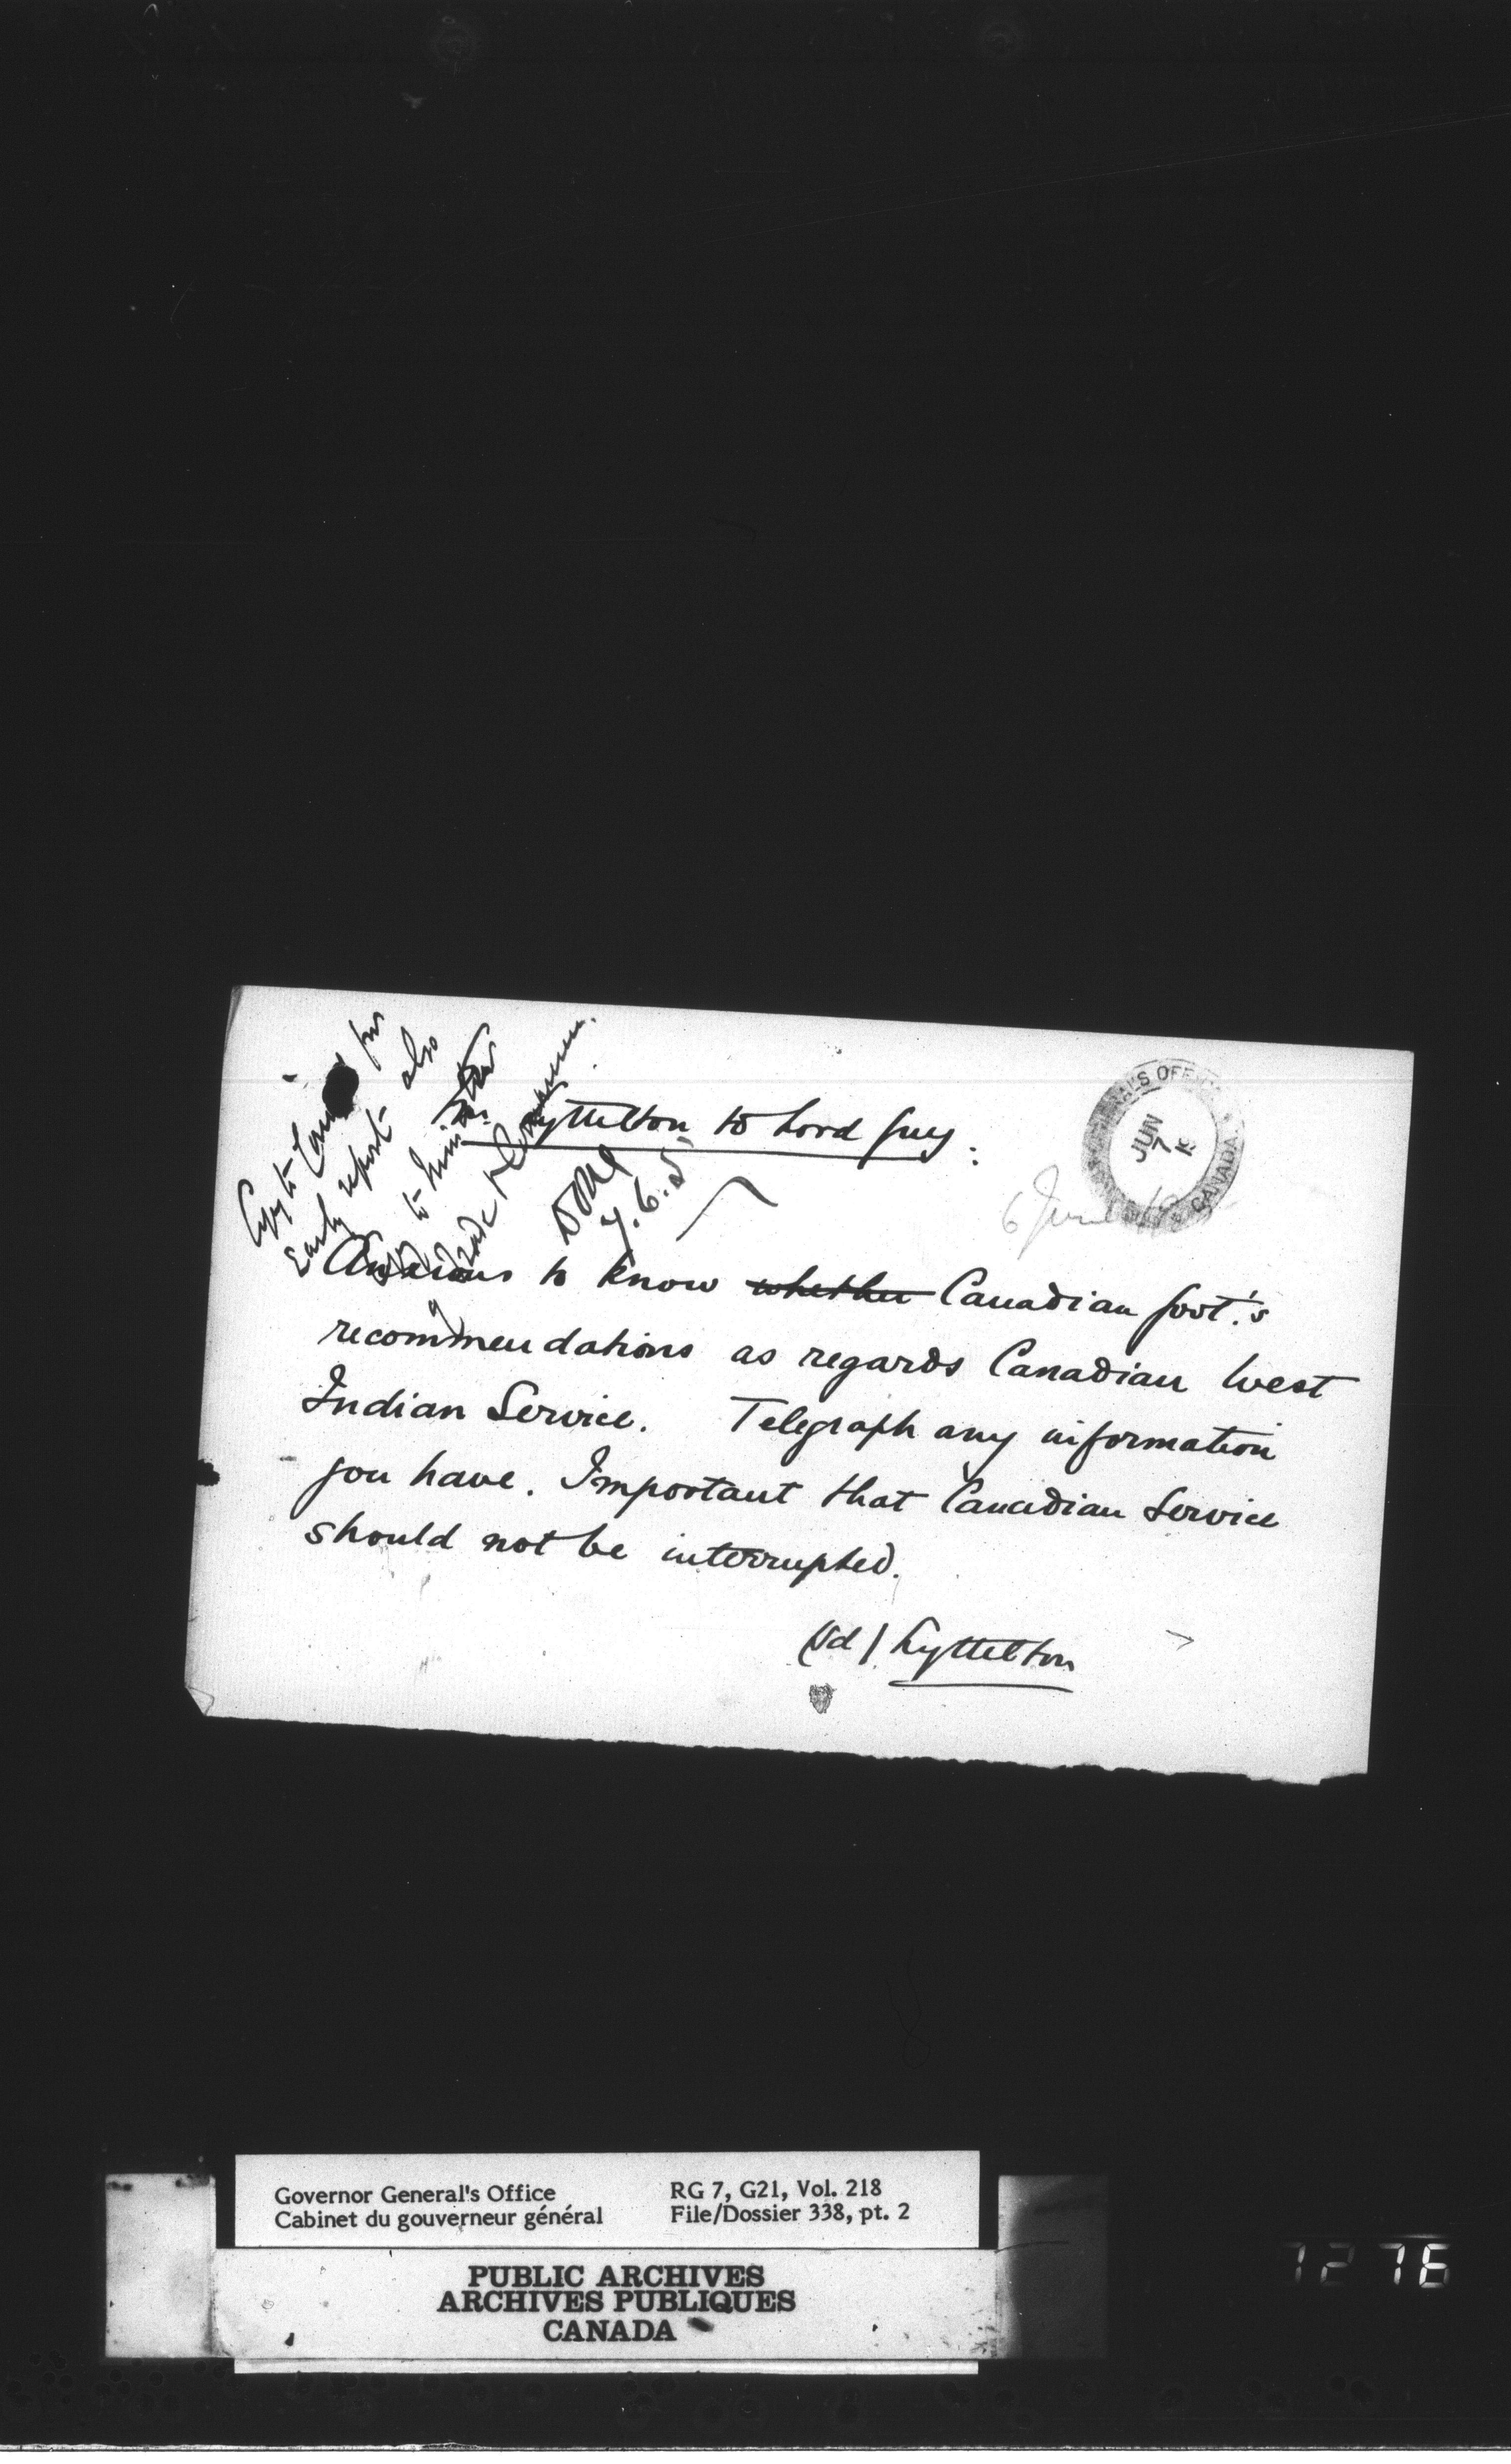 Copy to for
early report also
to Minister
Trade & Commerce.
7.6.5
Mr. Lyttelton to Lord Grey:
GENERAL'S OFFICE
CANADA
JUN
7
6 June
Anxious to know whether Canadian Govt.'s
recommendations as regards Canadian West
Indian Service. Telegraph any information
you have. Important that Canadian Service
should not be interrupted.
(sd) Lyttelton
Governor General's Office
Cabinet du gouverneur général
RG 7, G21, Vol. 218
File/Dossier 338, pt. 2
PUBLIC ARCHIVES
ARCHIVES PUBLIQUES
CANADA
1276